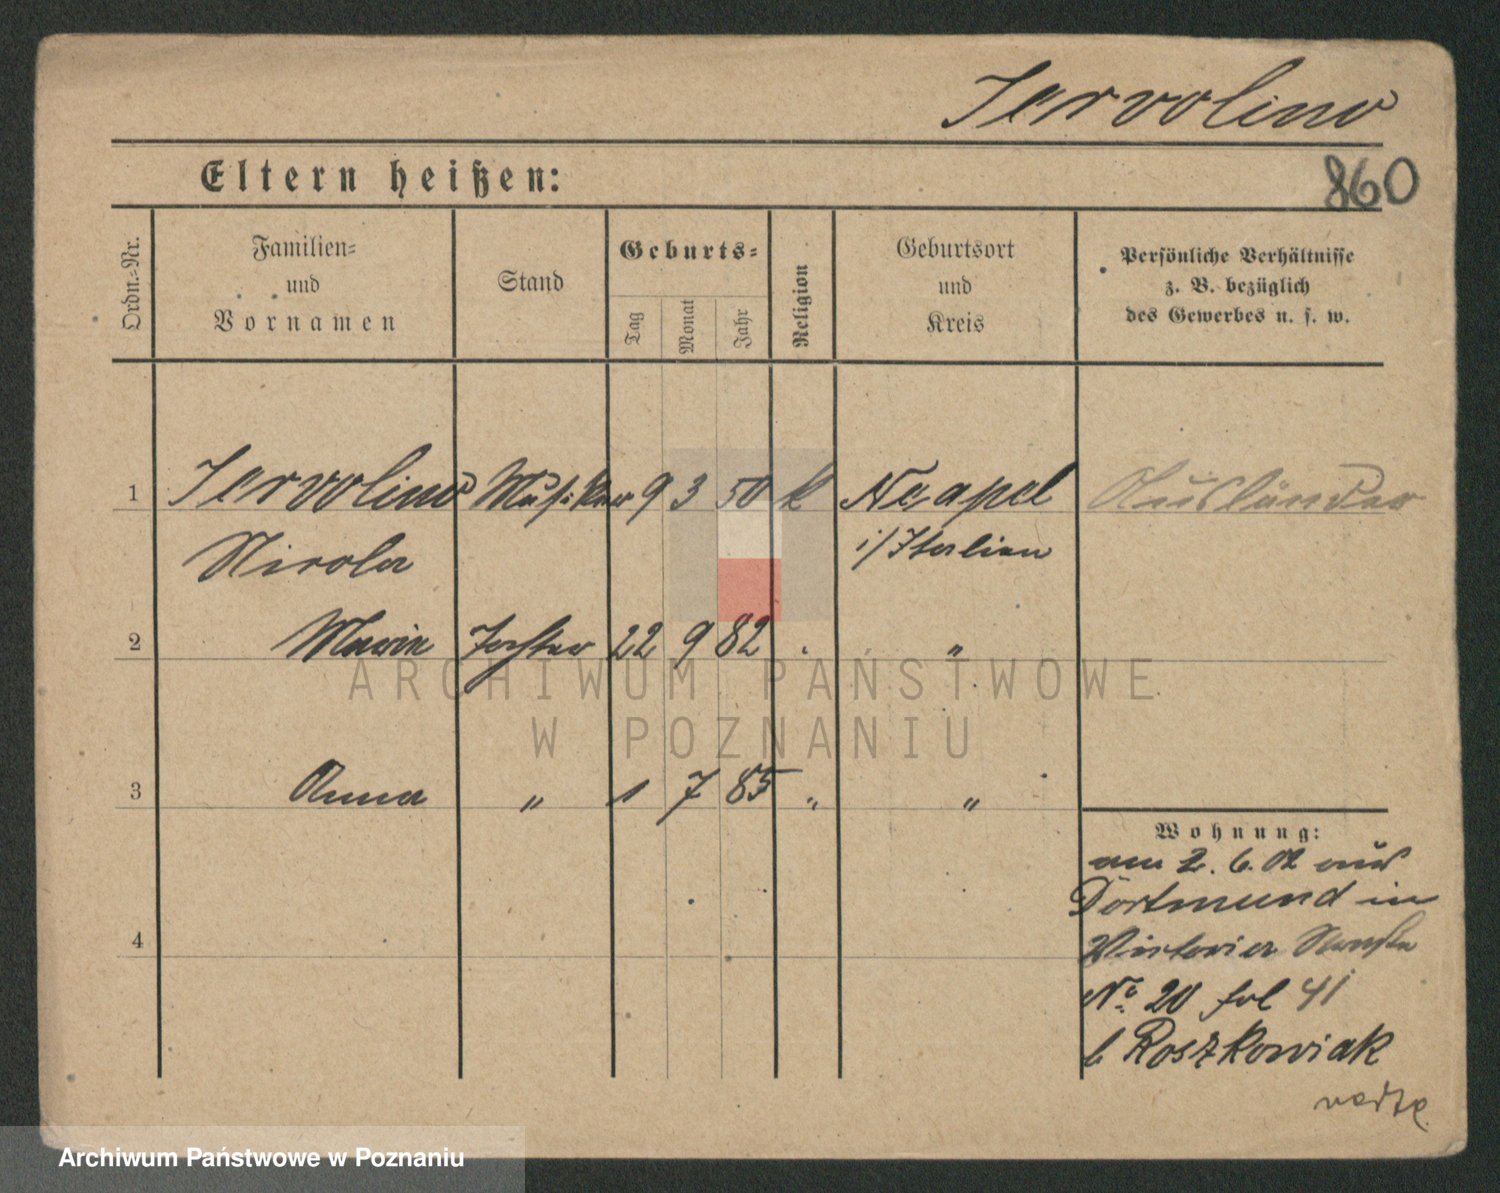 Iervolino
Eltern heißen:
860
Ordn.-Nr.
Familien-
und
Vornamen
Stand
Geburts-
Tag
Monat
Jahr
Religion
Geburtsort
und
Kreis
Persönliche Verhältnisse
z. B. bezüglich
des Gewerbes u. s. w.
1 Iervolino Musiker 9 3 50 k Neapel Ausländer
Nicola i/Italien
2 Marie Tochter 22 9 82 " "
3 Anna " 1 7 85 " "
Wohnung:
am 2. 6. 02 aus
Dortmund in
4
Victoria Straße
No 20 fol 41
b Roszkowiak
ARCHIWUM PAŃSTWOWE
W POZNANIU
Archiwum Państwowe w Poznaniu